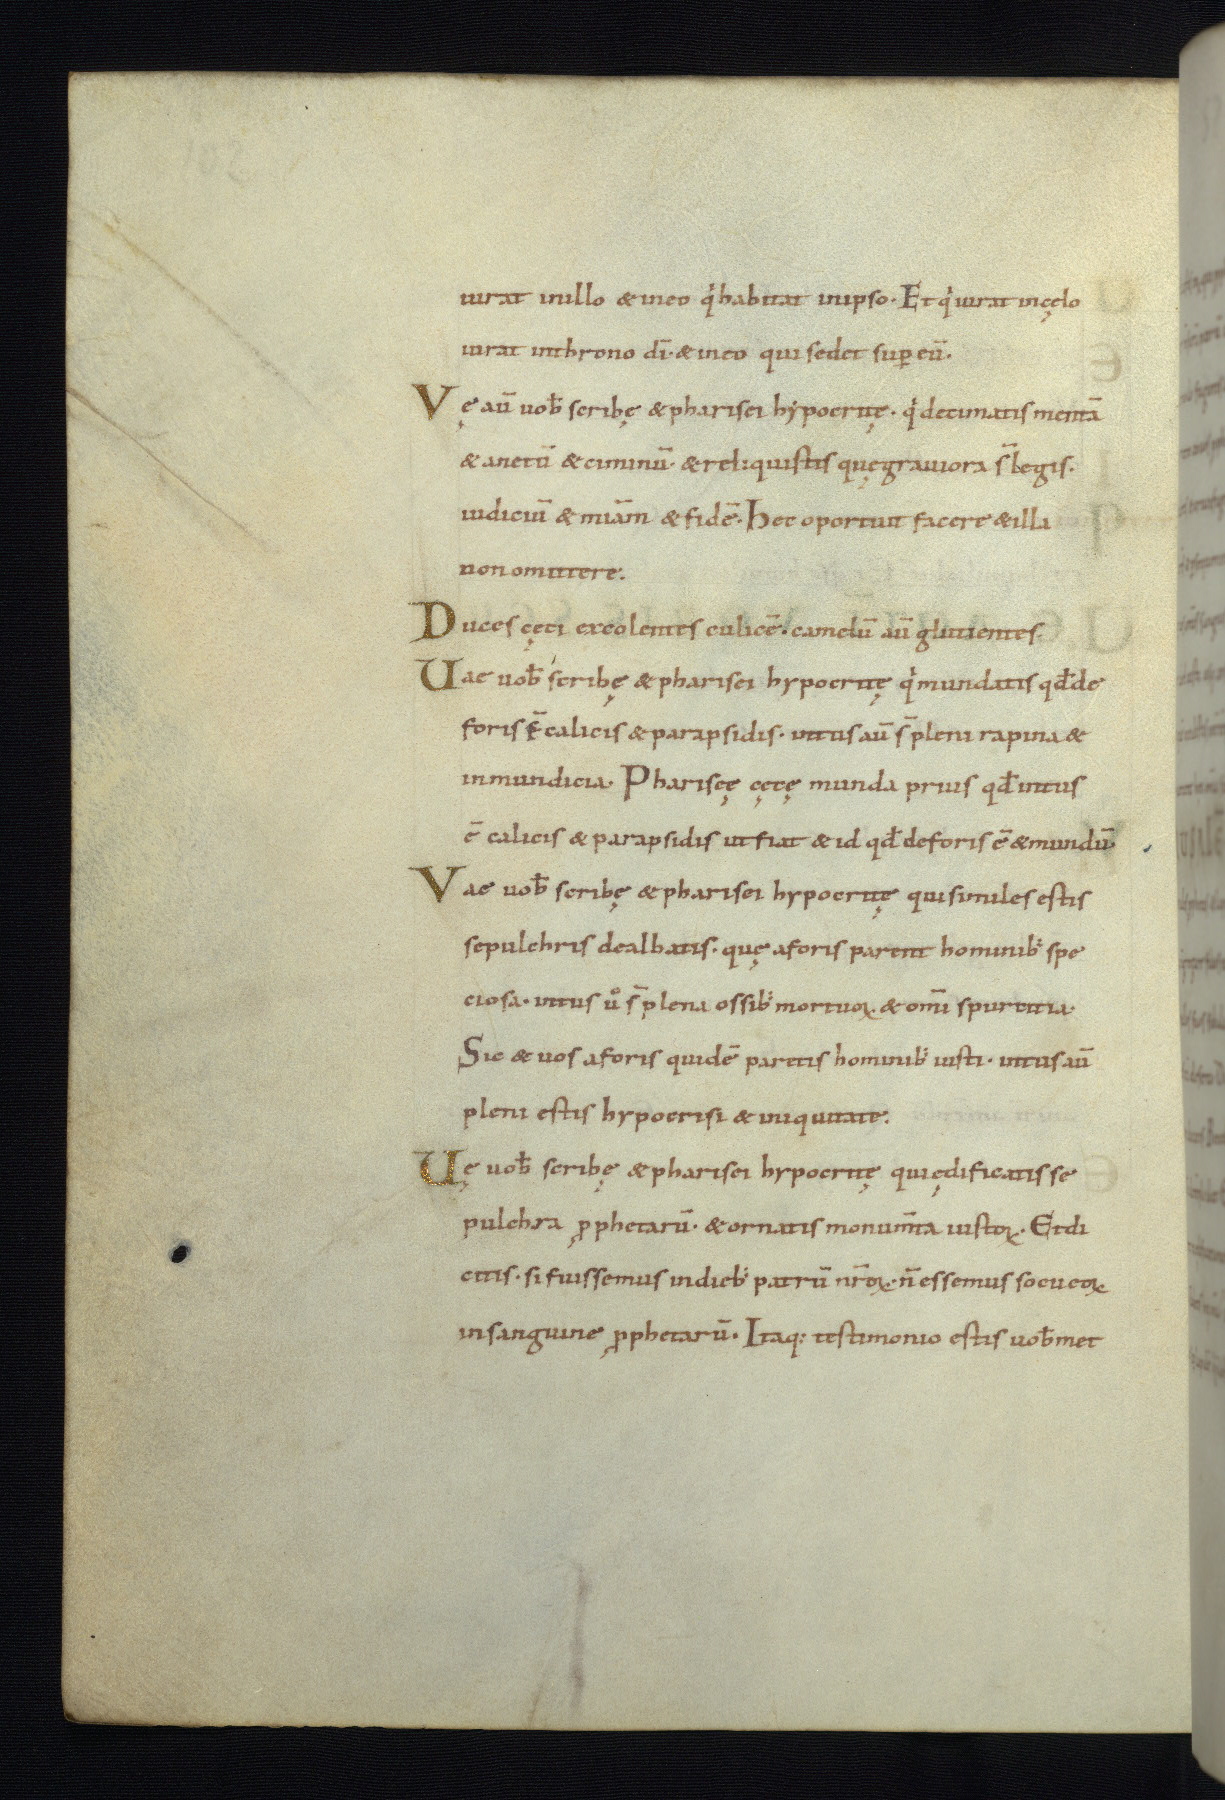 iurat inillo & ineo q'habitat inipso. Et q'iurat incęlo
iurat inthrono dī. & ineo qui sedet sup eū.
Vę aū uob̄ scribę & pharisei hẏpocritę. q' decimatis mentā
& anetū & ciminū. & reliquistis quęgrauiora s̄ legis.
iudiciū & miām & fidē. Hec oportuit facere & illa
non omittere.
Duces cęci excolentes culicē. camelū aū glutientes.
Uae uob̄ scribę & pharisei hypocritę q'mundatis qd̄ de
foris ē calicis & parapsidis. intus aū s̄ pleni rapina &
inmundicia. Phariseę cęcę munda prius qd̄ intus
ē calicis & parapsidis ut fiat & id qd̄ deforis ē & mundū.
Vae uob̄ scribę & pharisei hypocritę qui similes estis
sepulchris dealbatis. quę aforis parent hominib; spe
ciosa. intus uͦ s̄ plena ossib; mortuoꝝ. & omī spurcitia.
Sic & uos aforis quidē paretis hominib; iusti. intus aū
pleni estis hypocrisi & iniquitate.
Uę uob̄ scribę & pharisei hypocritę qui ędificatis se
pulchra ꝓphetarū. & ornatis monum̄ta iustoꝝ. Et di
citis. si fuissemus indieb; patrū nr̄oꝝ. n̄ essemus socii eoꝝ
insanguine ꝓphetarū. Itaq; testimonio estis uob̄met